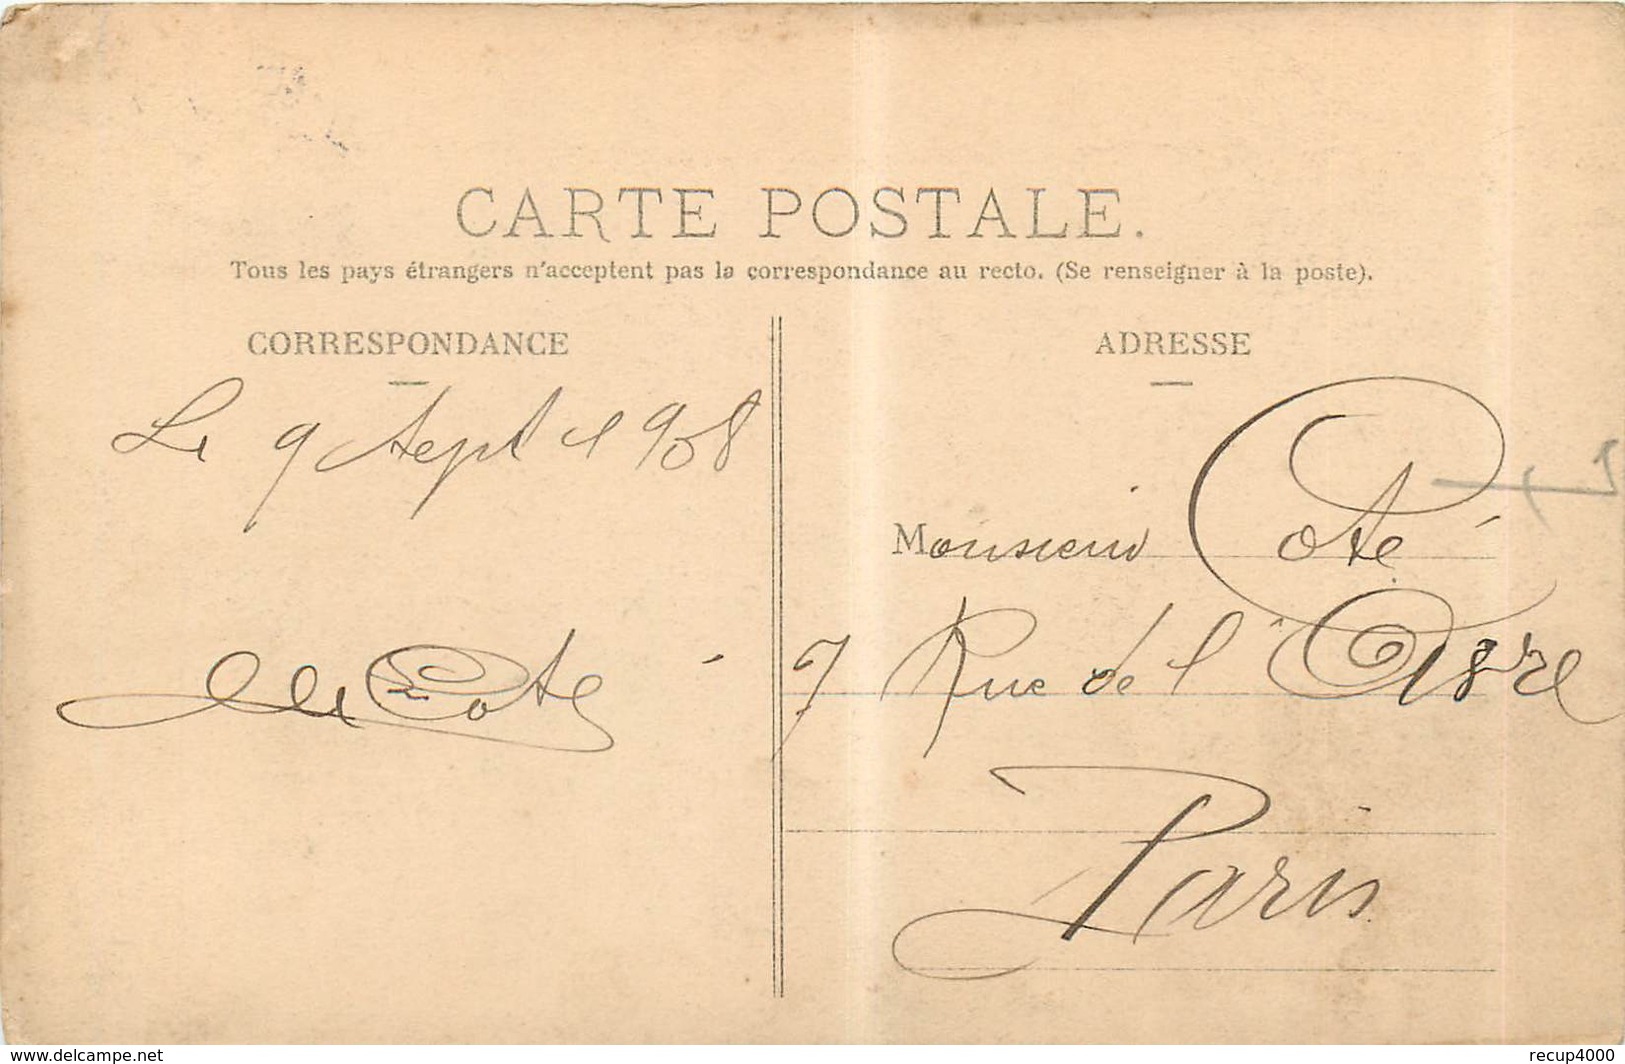 CARTE POSTALE.
Tous les pays étrangers n'acceptent pas la correspondance au recto. (Se renseigner à la poste).
CORRESPONDANCE
Le 9 Sept 1908
Coté
ADRESSE
Monsieur Coté
7 Rue de l'
Paris
www.delcampe.net
recup4000